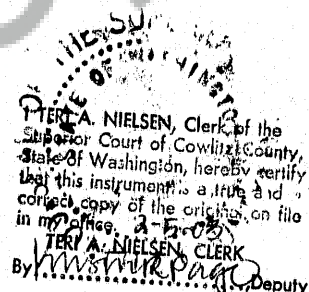 THE SU
STATE OF WASHINGTON
I, TERI A. NIELSEN, Clerk of the
Superior Court of Cowlitz County,
State of Washington, hereby certify
that this instrument is a true and
correct copy of the original on file
in my office. 2-5-03
TERI A. NIELSEN, CLERK
By Deputy